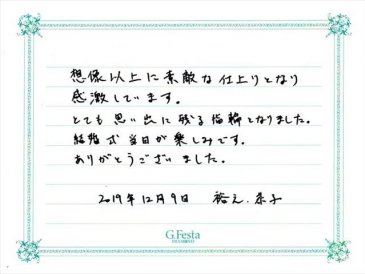 想像以上に素敵な仕上りとなり
感激しています。
とても思い出に残る指輪となりました。
結婚式当日が楽しみです。
ありがとうございました。
2019年12月9日
G.Festa